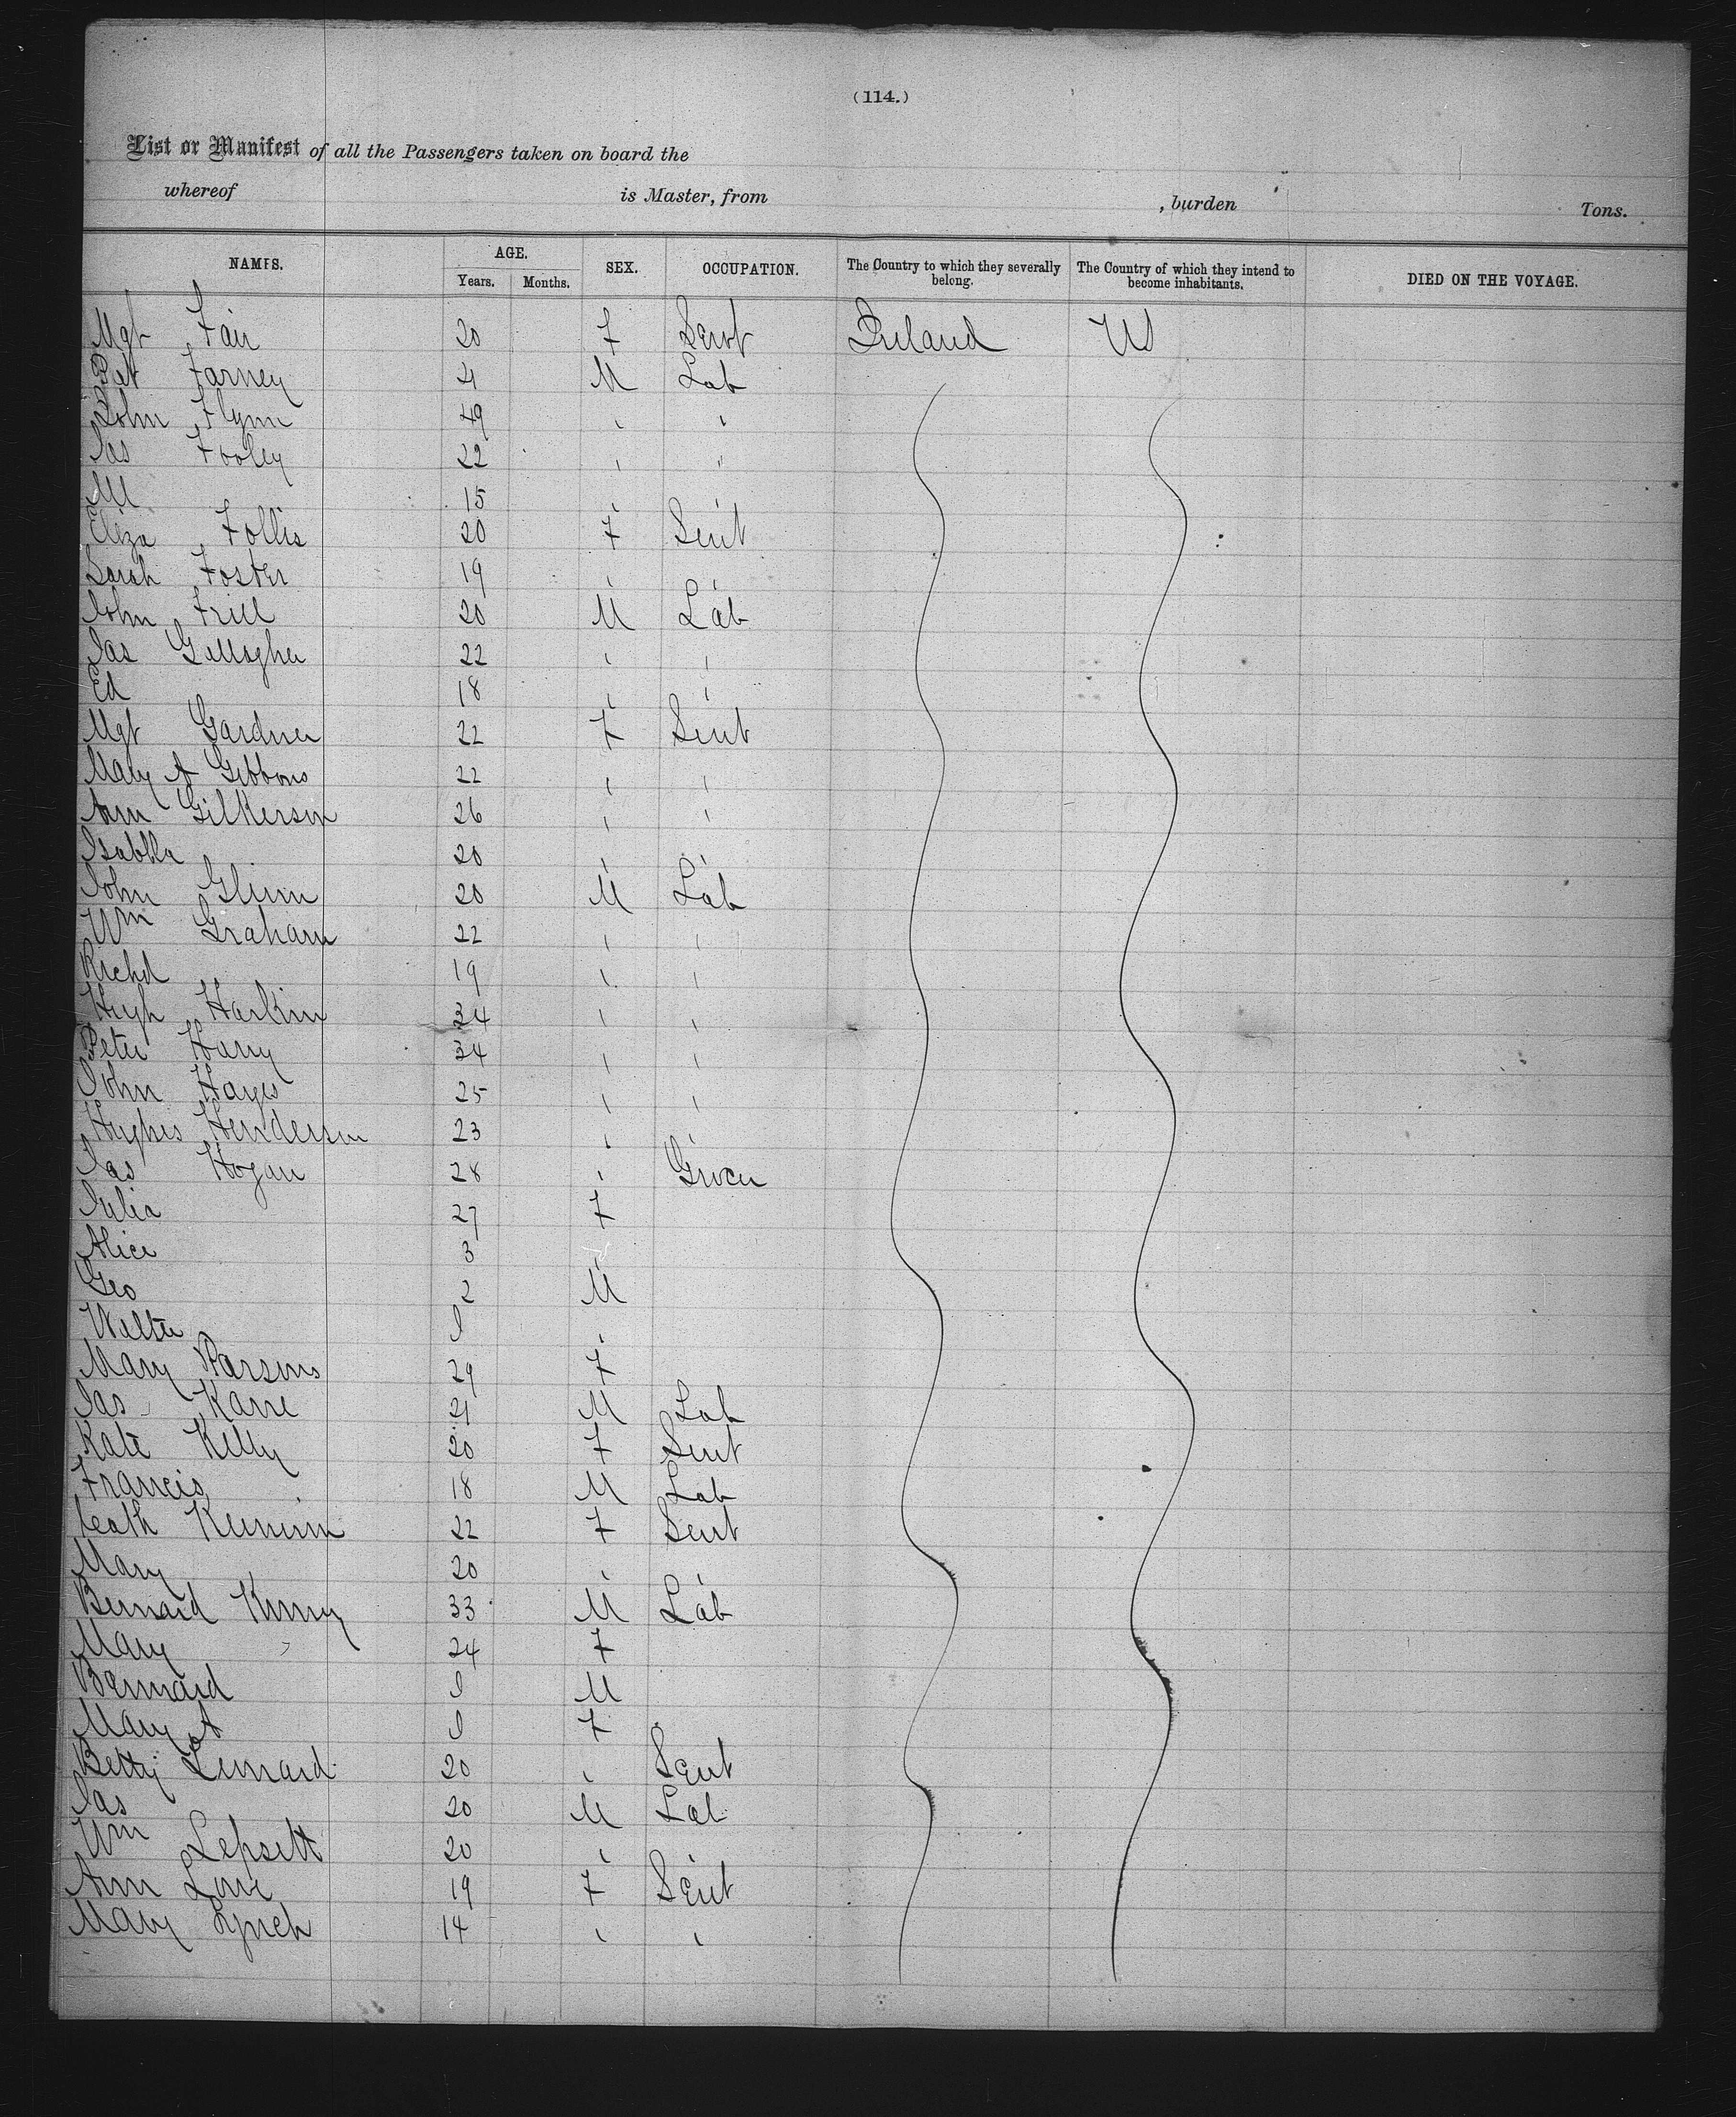 (114.)
List or Manifest of all the Passengers taken on board the
whereof is Master, from , burden Tons.
NAMES. AGE. SEX. OCCUPATION. The Country to which they severally belong. The Country of which they intend to become inhabitants. DIED ON THE VOYAGE.
Years. Months.
Mgt Fair 20 F Servt Ireland US
Pat Farney 21 M Lab
John Flynn 49 " "
Jas Fooley 22 " "
Ml 15 "
Eliza Follis 20 F Servt
Sarah Foster 19 " "
John Frill 20 M Lab
Jas Gallagher 22 " "
Ed 18 " "
Mgt Gardner 22 F Servt
Mary A Gibbons 22 " "
Ann Gilkerson 26 " "
Isablla 20 " "
John Glinn 20 M Lab
Wm Graham 22 " "
Richd 19 " "
Hugh Harkin 34 " "
Peter Harry 34 " "
John Hayes 25 " "
Hughes Henderson 23 " "
Jas Hogan 28 " Grocer
Julia 27 F
Alice 3 "
Geo 2 M
Walter I "
Mary Parsons 29 F
Jas Karre 21 M Lab
Kate Kelly 20 F Servt
Francis 18 M Lab
Cath 22 F Servt
Mary 20 " "
Bernard 33 M Lab
Mary 24 F
Bernard I M
Mary A I F
Betty Lennard 20 " Servt
Jas 20 M Lab
Wm Lepsett 20 " "
Ann Love 19 F Servt
Mary Lynch 14 " "